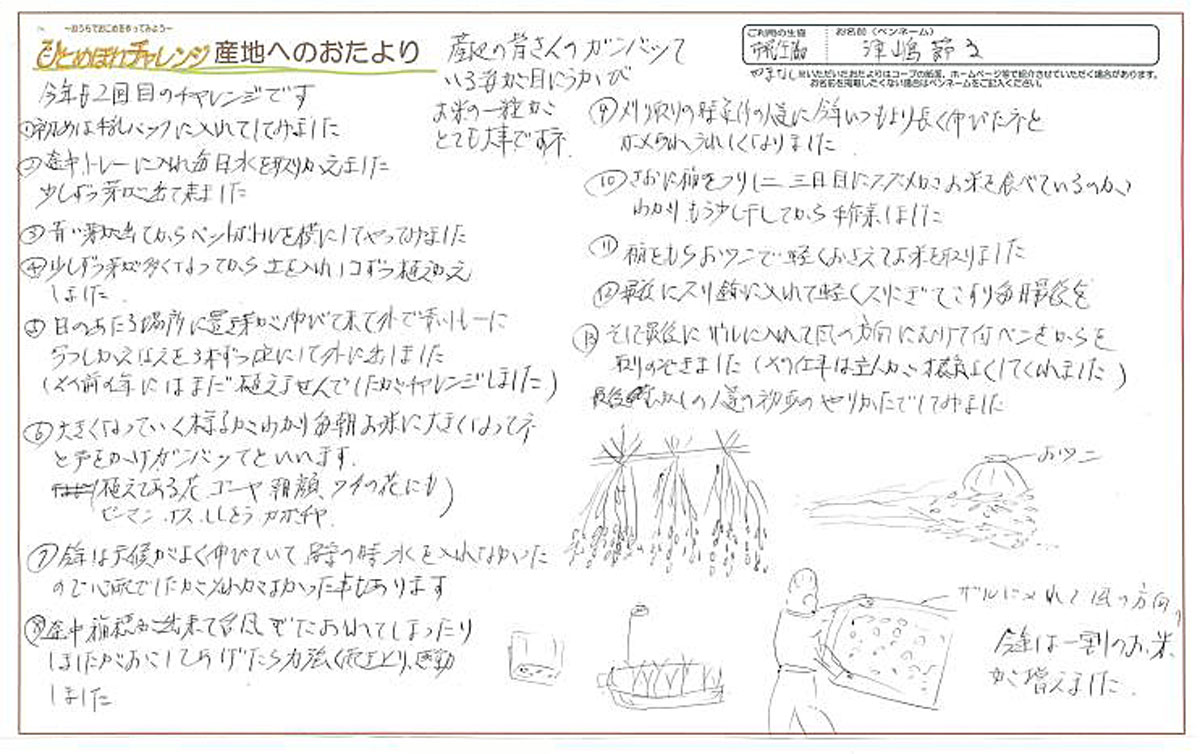 ～おうちでおこめをやってみよう～
ひとめぼれチャレンジ 産地へのおたより
ご利用の生協
市民生協
やまなし
お名前（ペンネーム）
津嶋 節子
※いただいたおたよりはコープの紙面、ホームページ等で紹介させていただく場合があります。
お名前を掲載したくない場合はペンネームをご記入ください。
産地の皆さんのガンバッて
いる姿が目にうかび
お米の一粒が
とても大事ですネ.
今年も2回目のチャレンジです
①初めは牛乳パックに入れてしてみました
②途中、トレーに入れ毎日水を取りかえました
少しずつ芽が出て来ました
③青い芽が出てからペットボトルを横にしてやってみました
④少しずつ芽が多くなってから土を入れ1コずつ植えかえ
しました.
⑤日のあたる場所に置き芽が伸びて来て外で青いトレーに
うつしかえ苗を3本ずつ位にして外に出しました
前の年にはまだ植えませんでしたがチャレンジしました)
⑥大きくなっていく様子がわかり毎朝お米に大きくなってネ
と声をかけガンバッてといいます.
(植えてある花、ゴーヤ 朝顔、 の花にも)
ピーマン ナス、ししとう カボチャ.
⑦今年は天候がよく伸びていて の時水を入れなかった
ので心配でしたがそれがよかった事もあります
⑧途中稲穂が出来て台風でたおれてしまったり
しましたがおこしてあげたら力強く 感動
しました
⑨刈り取りの時近所の人達に今年いつもより長く伸びたネと
ほめられうれしくなりました
⑩さおに稲をつりし二、三日目にスズメがお米を食べているのが
わかり もう少し干してから作業しました
⑪稲をもちおワンで軽くおさえてお米を取りました
⑫最後にスリ鉢に入れて軽くスリこぎでこすり
⑬そして最後にザルに入れて風の方向にむけて からを
取りのぞきました ( は主人が してくれました)
むかしの人達の初歩のやりかたでしてみました
おワン
ザルに入れて風の方向
今年は一割のお米
が増えました.